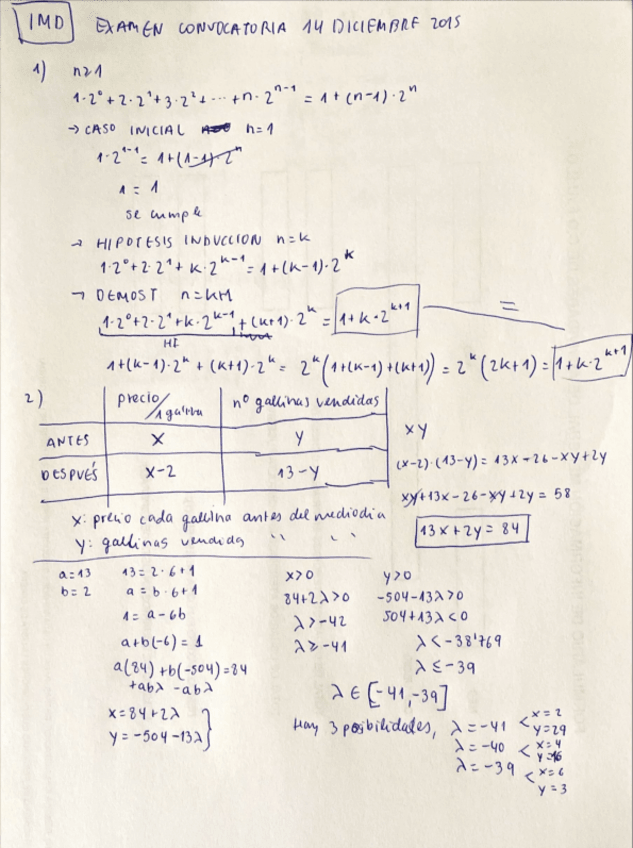 IMD EXAMEN CONVOCATORIA 14 DICIEMBRE 2015
1) n≥1
1·2⁰+2·2¹+3·2²+···+n·2ⁿ⁻¹ = 1+(n-1)·2ⁿ
→ CASO INICIAL n=1
1·2¹⁻¹ = 1+(1-1)·2ⁿ
1 = 1
se cumple
→ HIPOTESIS INDUCCION n=k
1·2⁰+2·2¹+k·2ᵏ⁻¹ = 1+(k-1)·2ᵏ
→ DEMOST n=k+1
1·2⁰+2·2¹+k·2ᵏ⁻¹+(k+1)·2ᵏ = 1+k·2ᵏ⁺¹ =
HI
1+(k-1)·2ᵏ+(k+1)·2ᵏ = 2ᵏ(1+(k-1)+(k+1)) = 2ᵏ(2k+1) = 1+k·2ᵏ⁺¹
2) precio/1 gallina nº gallinas vendidas
ANTES x y xy
DESPUÉS x-2 13-y (x-2)·(13-y) = 13x-26-xy+2y
xy+13x-26-xy+2y = 58
x: precio cada gallina antes del mediodia
13x+2y = 84
y: gallinas vendidas " "
a=13 13=2·6+1 x>0 y>0
b=2 a=b·6+1 84+2λ>0 -504-13λ>0
1=a-6b λ>-42 504+13λ<0
a+b(-6)=1 λ≥-41 λ<-38'769
a(84)+b(-504)=84 λ≤-39
+abλ -abλ
λ∈[-41,-39]
x=84+2λ
y=-504-13λ}
Hay 3 posibilidades, λ=-41 < x=2 y=29
λ=-40 < x=4 y=16
λ=-39 < x=6 y=3